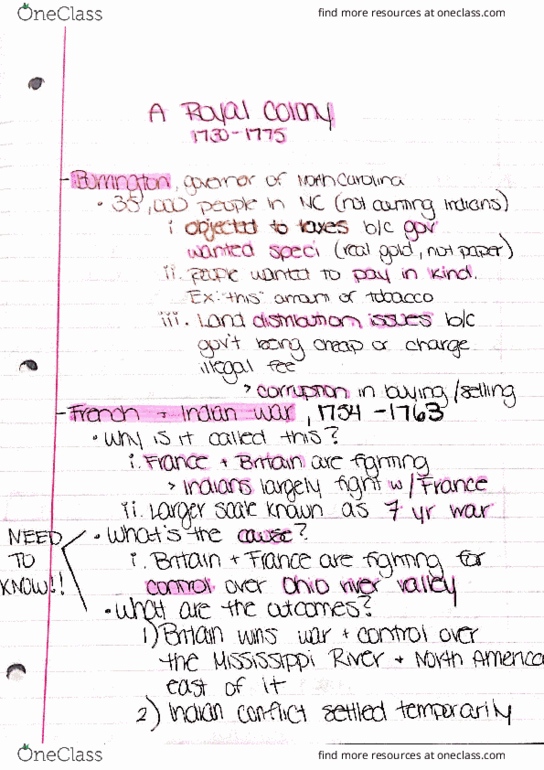 OneClass
find more resources at oneclass.com
A Royal Colony
1730-1775
- Burrington, governor of North Carolina
• 35,000 people in NC (not counting Indians)
i objected to taxes b/c gov
wanted speci (real gold, not paper)
ii. people wanted to pay in kind.
Ex: "this" amount of tobacco
iii. Land distribution issues b/c
gov't being cheap or charge
illegal fee
> corruption in buying/selling
- French + Indian war, 1754-1763
• Why is it called this?
i. France + Britain are fighting
> Indians largely fight w/ France
ii. Larger scale known as 7 yr war
NEED TO KNOW!!
• What's the cause?
i. Britain + France are fighting for
control over Ohio river valley
• What are the outcomes?
1) Britain wins war + control over
the Mississippi River + North America
east of it
2) Indian conflict settled temporarily
OneClass
find more resources at oneclass.com